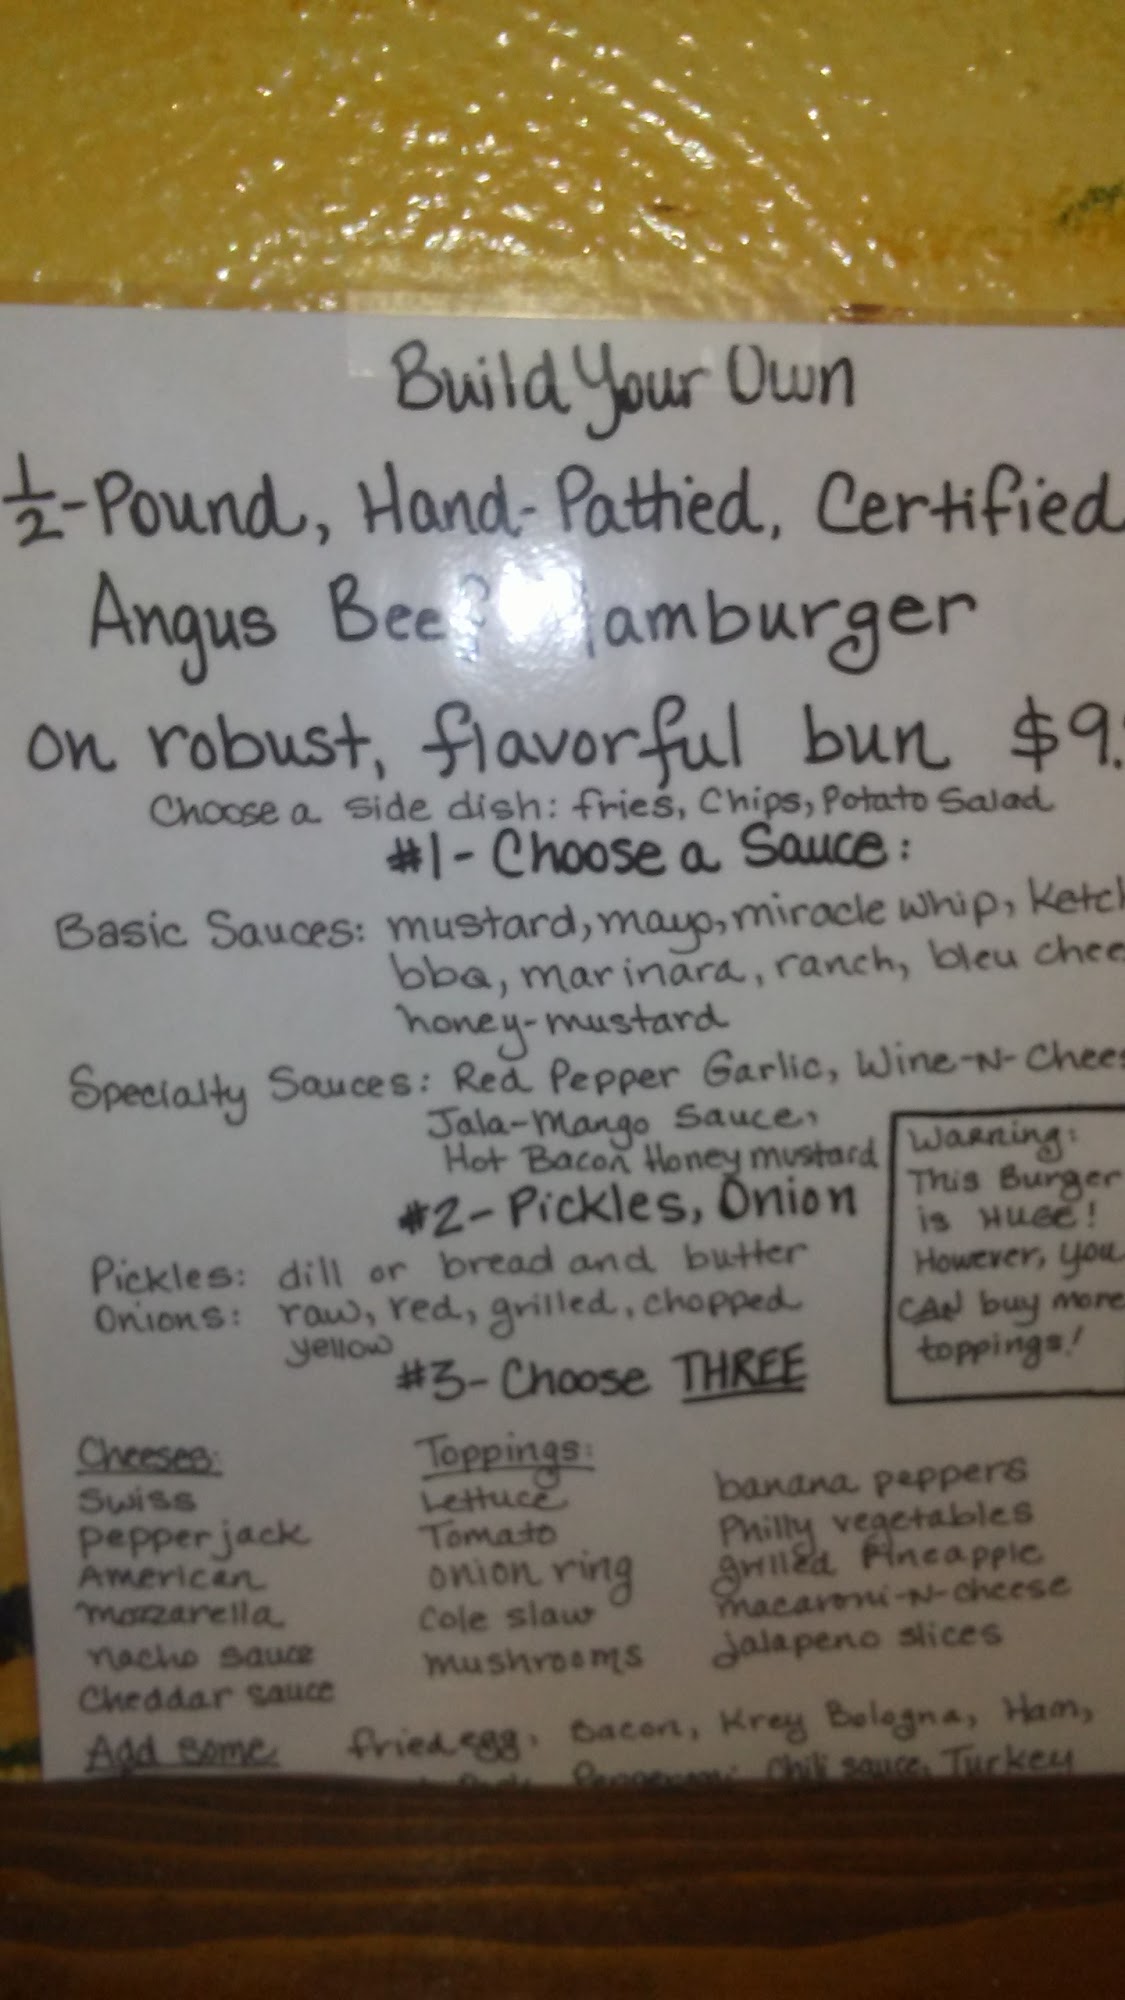 Build Your Own
1/2-Pound, Hand-Pattied, Certified
Angus Beef Hamburger
on robust, flavorful bun $9.
Choose a side dish: fries, Chips, Potato Salad
#1- Choose a Sauce:
Basic Sauces: mustard, mayo, miracle whip, Ketch
bbq, marinara, ranch, bleu chee
honey-mustard
Specialty Sauces: Red Pepper Garlic, Wine-N-Chees
Jala-Mango Sauce,
Hot Bacon Honey mustard
Warning:
This Burger
is HUGE!
However, you
CAN buy more
toppings!
#2- Pickles, Onion
Pickles: dill or bread and butter
Onions: raw, red, grilled, chopped
yellow
#3- Choose THREE
Cheeses:
Swiss
pepper jack
American
mozzarella
nacho sauce
Cheddar sauce
Toppings:
Lettuce
Tomato
onion ring
Cole slaw
mushrooms
banana peppers
Philly vegetables
grilled Pineapple
macaroni-N-cheese
jalapeno slices
Add some fried egg, Bacon, Krey Bologna, Ham,
Pepperoni, Chili sauce, Turkey